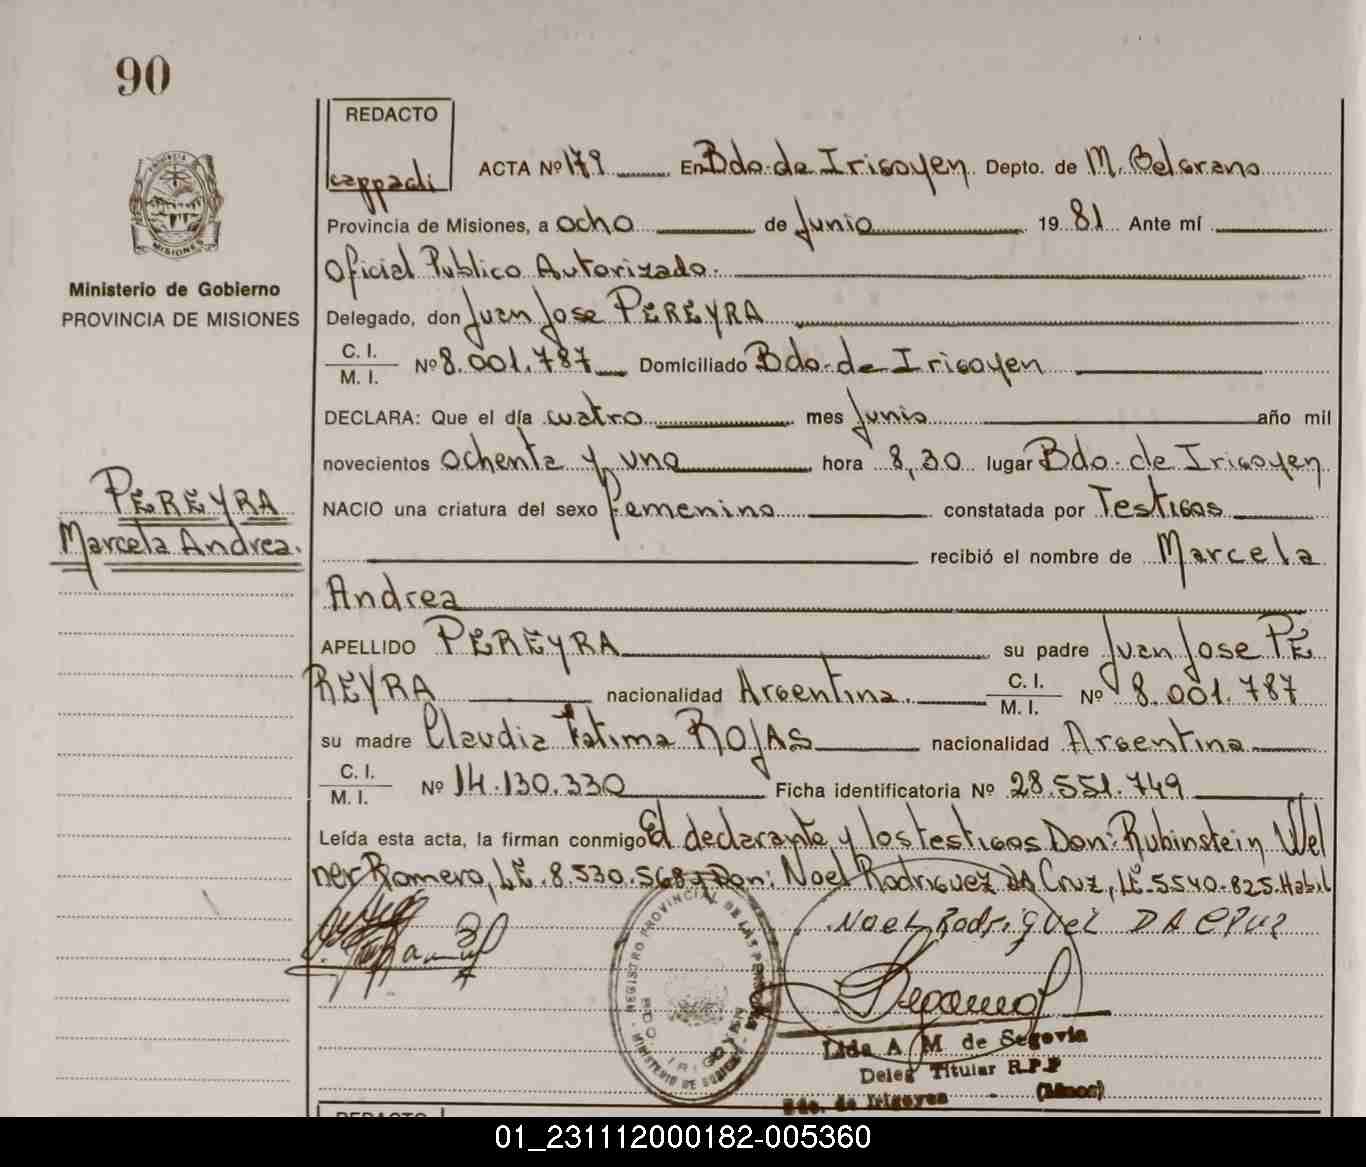 90
REDACTO
cappadi
PROVINCIA
MISIONES
Ministerio de Gobierno
PROVINCIA DE MISIONES
ACTA Nº 179 En Bdo. de Irigoyen Depto. de M. Belgrano
Provincia de Misiones, a ocho de Junio 19 81 Ante mí
Oficial Publico Autorizado.
Delegado, don Juan Jose PEREYRA
C. I.
M. I. Nº 8.001.787 Domiciliado Bdo. de Irigoyen
DECLARA: Que el día cuatro mes Junio año mil
novecientos ochenta y uno hora 8,30 lugar Bdo. de Irigoyen
PEREYRA
Marcela Andrea.
NACIO una criatura del sexo femenino constatada por Testigos
recibió el nombre de Marcela
Andrea
APELLIDO PEREYRA su padre Juan Jose PE
REYRA nacionalidad Argentina. C. I.
M. I. Nº 8.001.787
su madre Claudia Fatima ROJAS nacionalidad Argentina
C. I.
M. I. Nº 14.130.330 Ficha identificatoria Nº 28.551.749
Leída esta acta, la firman conmigo El declarante y los testigos Don: Rubinstein Wel
ner Romero, LE. 8.530.568 y Don: Noel Rodriguez DA Cruz, LE. 5.540.825. Habil
Noel Rodriguez DA CRUZ
REGISTRO PROVINCIAL DE LAS PERSONAS
BDO. IRIGOYEN
MINISTERIO DE GOBIERNO
Lida A M de Segovia
Deleg Titular R.P.P
Bdo. de Irigoyen - (Mnes)
REDACTO
01_231112000182-005360